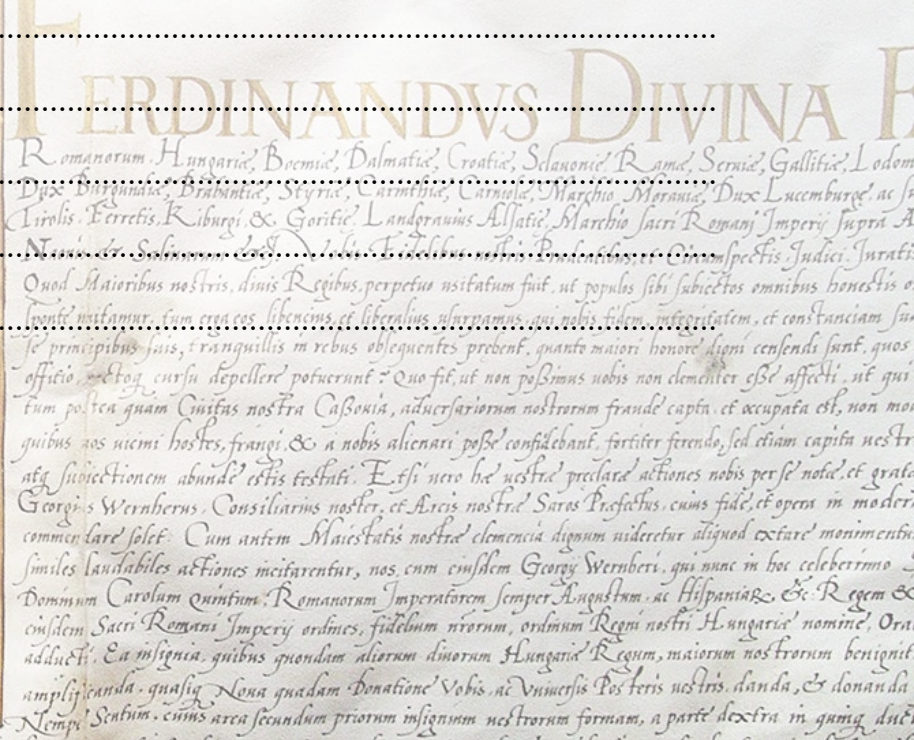 FERDINANDVS DIVINA F
Romanorum. Hungariæ, Boemiæ, Dalmatiæ, Croatiæ, Sclavoniæ, Ramæ, Seruiæ, Gallitiæ, Lodom
Dux Burgundiæ, Brabantiæ, Styriæ, Carinthiæ, Carniolæ, Marchio Morauiæ, Dux Lucemburgæ, ac
Tirolis. Ferretis. Kiburgi, &. Goritiæ. Landgrauius Alsatiæ, Marchio sacri Romani Imperij supra
Naonis & Salinarum Vobis Fidelibus nostris Prudentibus, et Circumspectis. Judici. Jurati
Quod Maioribus nostris, diuis Regibus, perpetuo usitatum fuit, ut populos sibi subiectos omnibus honestis
sponte nitamur, tum erga eos libencius, et liberalius usurpamus. qui nobis fidem, integritatem, et constanciam
se principibus suis, tranquillis in rebus obsequentes prebent, quanto maiori honore digni censendi sunt, quos
offitio cursu depellere potuerunt? Quo fit, ut non poßimus uobis non clementer eße affecti, ut qui
tum postea quam Ciuitas nostra Caßouia, aduersariorum nostrorum fraude capta, et occupata est, non
quibus uos uicini hostes, frangi, & a nobis alienari poße confidebant, fortiter ferendo, sed etiam capita uestr
atq subiectionem abunde estis testati. Etsi uero hæ uestræ preclaræ actiones nobis per se notæ, et grat
Georgius Wernherus. Consiliarius noster, et Arcis nostræ Saros Præfectus. cuius fide, et opera in moder
commendare solet: Cum autem Maiestatis nostræ clemencia dignum uideretur aliquod extare monimentu
similes laudabiles actiones incitarentur, nos, cum eiusdem Georgy Wernheri, qui nunc in hoc celeberrimo
Dominum Carolum Quintum. Romanorum Imperatorem semper Augustum. ac Hispaniar, &c. Regem &
eiusdem Sacri Romani Imperij ordines, fidelium nrorum, ordinum Regni nostri Hungariæ nomine, Ora
adducti. Ea insignia, quibus quondam aliorum diuorum Hungariæ Regum, maiorum nostrorum benignit
amplificanda. quasiq Noua quadam Donatione Vobis. ac Vniuersis Posteris uestris. danda, & donanda
Nempe Scutum, cuius area secundum priorum insignium uestrorum formam, a parte dextra in quinq duct